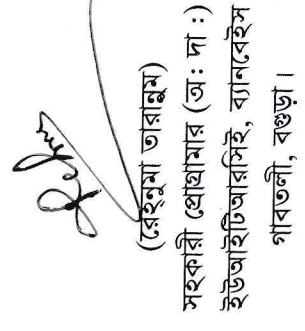 (রেহনুমা তারান্নুম)
সহকারী প্রোগ্রামার (অ: দা :)
ইউআইটিআরসিই, ব্যানবেইস
গাবতলী, বগুড়া।